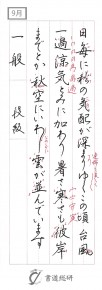 9月
日毎に秋の気配が深まりゆくこの頃台風
一過涼気とみに加わり暑さ寒さも彼岸
までとの秋空にいわし雲が並んでいます
一般 段級
書道総研